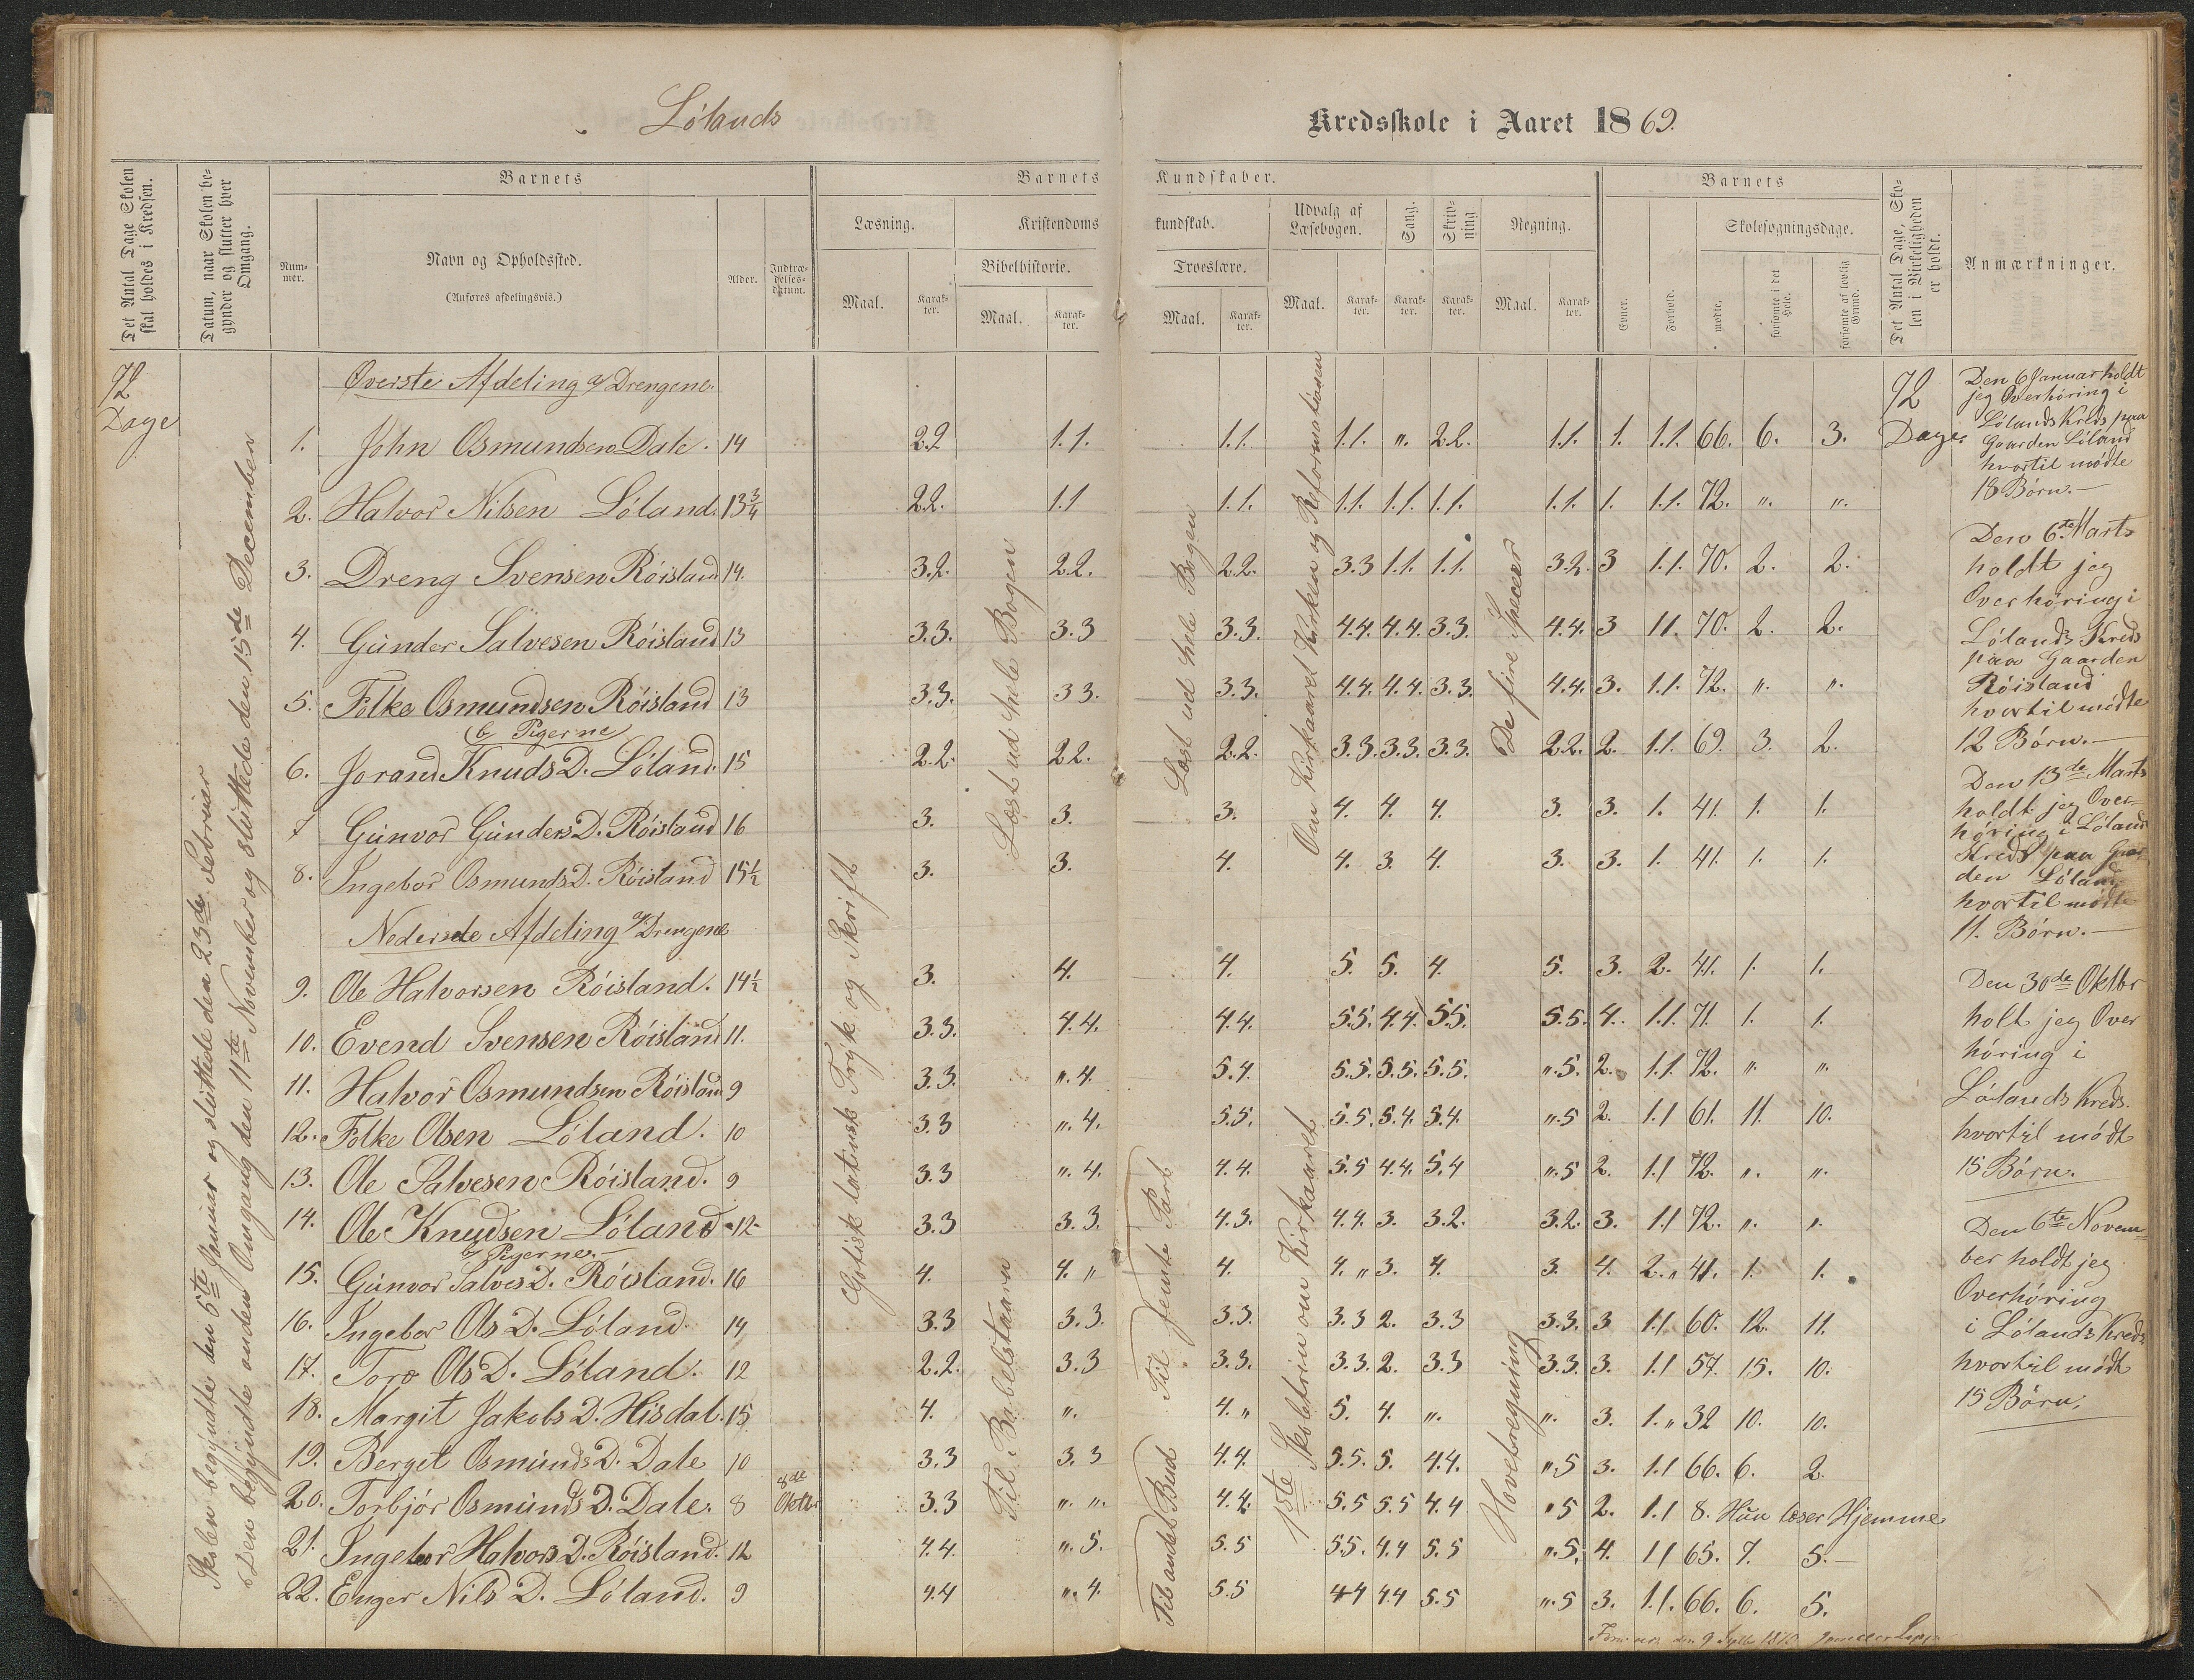 Lölands
Kredsskole i Aaret 1869.
Det Antal Dage Skolen skal holdes i Kredsen.
Datum, naar Skolen begynder og slutter hver Omgang.
Barnets
Barnets Kundskaber.
Barnets
Det Antal Dage, Skolen i Virkeligheden er holdt.
Anmærkninger.
Nummer.
Navn og Opholdssted.
(Anføres afdelingsvis.)
Alder.
Indtrædelsesdatum.
Læsning.
Kristendomskundskab.
Udvalg af Læsebogen.
Sang.
Skrivning
Regning.
Evner.
Forhold.
Skolesøgningsdage.
Bibelhistorie.
Troeslære.
Maal.
Karakter.
Maal.
Karakter.
Maal.
Karakter.
Maal.
Karakter.
Karakter.
Karakter.
Maal.
Karakter.
mødte.
forsømte i det Hele.
forsømte af lovlig Grund.
72 Dage
Skolen begyndte den 5te Januar og sluttede den 23de Februer
Den begyndte anden Omgang den 11te November og sluttede den 15de December
Gotisk latinsk Tryk og Skrift
Læst ud hele Bogen
Til Babelstaarn
Læst ud hele Bogen
Til femte Part
Til andet Bud
Om Kirkaaret Kirken og Reformationen
1ste Skoletrin om Kirkaaret
De fire Specier
Hovetregning
Øverste Afdeling a/ Drengene.
1. John Osmundsen Dale. 14 2.2 1.1. 1.1. 1.1. „. 2.2. 1.1. 1. 1.1. 66. 6. 3.
2. Halvor Nilsen Löland. 13 3/4 2.2. 1.1 1.1. 1.1. 1.1. 1.1. 1.1. 1. 1.1. 72. „. „.
3. Dreng Svensen Röisland 14. 3.2. 2.2. 2.2. 3.3 1.1. 1.1. 3.2. 3 1.1. 70. 2. 2.
4. Günder Salvesen Röisland 13 3.3. 3.3 3.3. 4.4. 4.4. 3.3. 4.4. 3 1.1. 70. 2. 2.
5. Folke Osmundsen Röisland 13 3.3. 3 3. 3.3. 4.4. 4.4. 3.3. 4.4. 3. 1.1. 72. „. „.
b Pigerne
6. Jorand Knuds D. Löland. 15 2.2. 2.2. 2.2. 3.3. 3.3. 3.3. 2.2. 2. 1.1. 69. 3. 2.
7 Günvor Günders D. Röisland 16 3. 3. 3. 4. 4. 4. 3. 3. 1. 41. 1. 1.
8. Ingebor Osmunds D. Röisland 15 1/2 3. 3. 4. 4. 3. 4. 3. 3. 1. 41. 1. 1.
Nederste Afdeling a/ Drengene
9. Ole Halvorsen Röisland. 14 1/2 3. 4. 4. 5. 5. 4. 5. 3. 2. 41. 1. 1.
10. Evend Svensen Röisland 11. 3.3. 4.4. 4.4. 5.5. 4.4. 5.5. 5.5. 4. 1.1. 71. 1. 1.
11. Halvor Osmundsen Röisland 9 3.3. „. 4. 5.4. 5.5. 5.5. 5.5. „.5. 2. 1.1. 72. „. „.
12. Folke Olsen Löland. 10 3.3 „. 4. 5.5. 5.5. 5.4. 5.4. „.5 2. 1.1 61. 11. 10.
13. Ole Salvesen Röisland. 9 3.3 „. 4. 4.4. 5.5 4.4. 5.4 „.5 2. 1.1 72. „. „.
14. Ole Knudsen Löland 12 3.3 3.3. 4.3. 4.4. 3. 3.2. 3.2. 3. 1.1 72. „. „.
b/ Pigerne.
15. Günvor Salves D. Röisland. 16 4. 4. „ 4. 4. „ 3. 4. 3. 4. 2. „ 41. 1. 1.
16. Ingebor Ols D. Löland. 14 3.3 3.3. 3.3. 3.3 2. 3.3 3.3. 3 1.1. 60. 12. 11.
17. Toro Ols D. Löland. 12 2.2. 3.3 3.3. 3.3. 2. 3.3 3.3. 3. 1.1 57. 15. 10.
18. Margit Jakobs D. Hisdal. 15 4. „. 4. „ 5. 4. „. „. 3. 1. „ 32 10. 10.
19. Berget Osmunds D. Dale 10 3.3 3.3 4.4. 5.5. 5. 4.4. „.5 3. 1.1 66. 6. 2.
20. Torbjör Osmünds D. Dale. 8 8de Oktbr 3.3 „. „. 4.4. 5.5 5.5 4.4 „ 5 2. 1.1 8. Hün læser Hjemme
21. Ingebor Halvors D. Röisland. 12 4.4. „. 5. 5.5 5.5. 4.4 5.5 „.5. 4. 1.1 65. 7. 5.
22. Enger Nils D. Löland. 9 4.4 „. 4. 5.5 4.4 4.4 5.5 „.5 3. 1.1. 66. 6. 5.
72 Dage.
Den 6 Januar holdt
jeg Overhöring i
Lölands Kreds paa
Gaarden Löland
hvortil mödte
18 Börn.
Den 6te Marts
holdt jeg
Overhöring i
Lölands Kreds
paa Gaarden
Röisland
hvortil mödte
12 Börn.
Den 13de Marts
holdt jeg Over-
höring i Löland
Kreds paa Gaar-
den Löland
hvortil mödte
11. Börn.
Den 30de Oktbr
holt jeg Over
höring i
Lölands Kreds.
hvortil mödt
15 Börn.
Den 6te Novem-
ber holdt jeg
Overhöring
i Lölands Kreds
hvortil mödt
15 Börn.
den 9